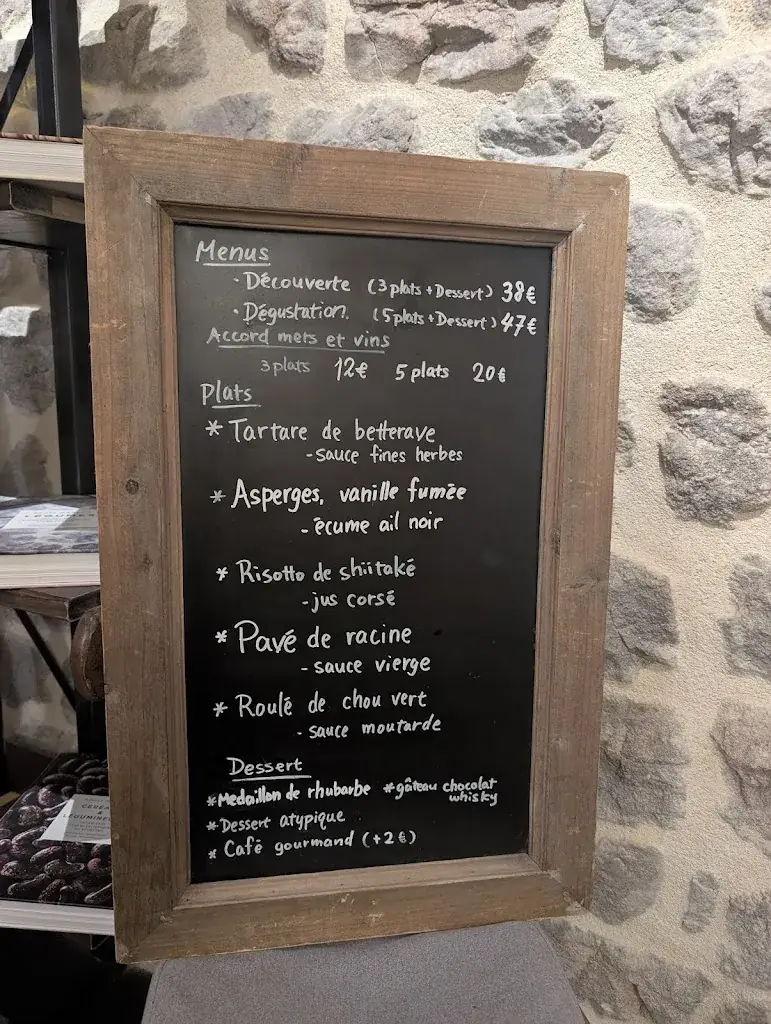 Menus
· Découverte (3 plats + Dessert) 38€
· Dégustation. (5 plats + Dessert) 47€
Accord mets et vins
3 plats 12€ 5 plats 20€
Plats
* Tartare de betterave
- sauce fines herbes
* Asperges, vanille fumée
- écume ail noir
* Risotto de shiitaké
- jus corsé
* Pavé de racine
- sauce vierge
* Roulé de chou vert
- sauce moutarde
Dessert
* Medaillon de rhubarbe * gâteau chocolat
whisky
* Dessert atypique
* Café gourmand (+2€)